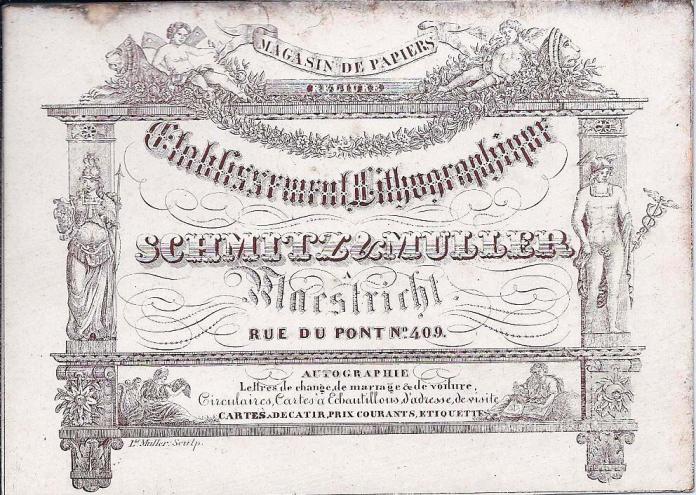 MAGASIN DE PAPIERS
Etablissement Lithographique
SCHMITZ & MULLER
A
Maestricht.
RUE DU PONT No. 409.
AUTOGRAPHIE
Lettres de change, de mariage & de voiture,
Circulaires, Cartes à Echantillons, d'adresse, de visite
CARTES A DECATIR, PRIX COURANTS, ETIQUETTE
Muller, Sculp.